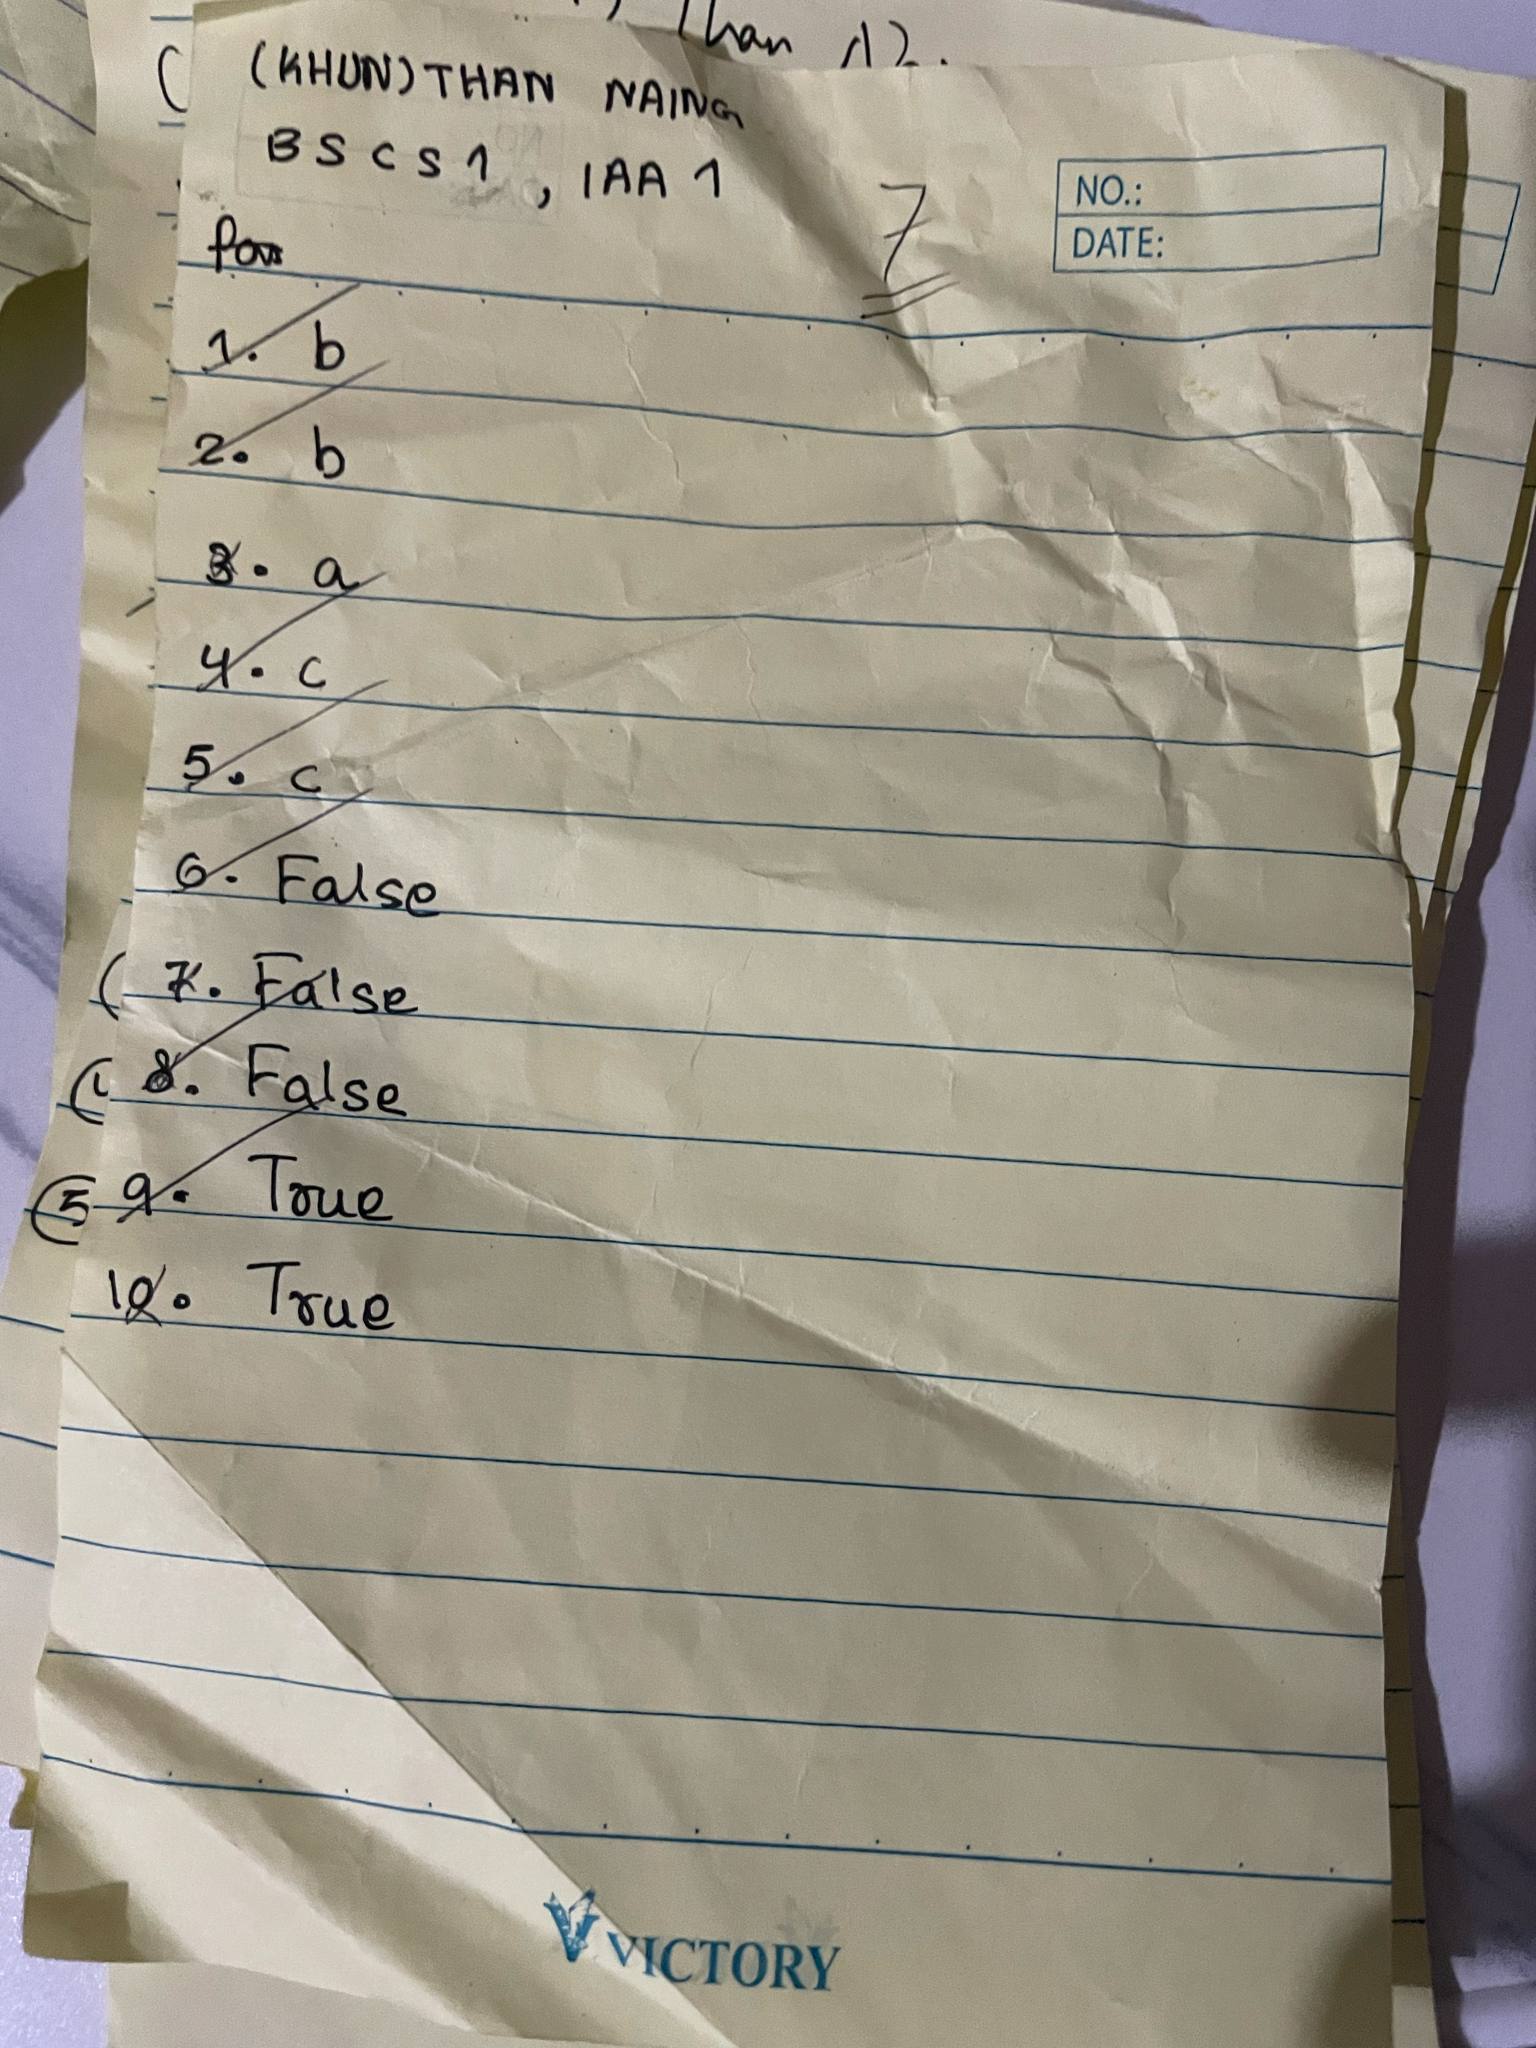 Than
(KHUN) THAN NAING
BSCS1, IAA 1
7
NO.:
DATE:
1. b
2. b
3. a
4. c
5. c
6. False
7. False
8. False
9. True
10. True
5
VICTORY